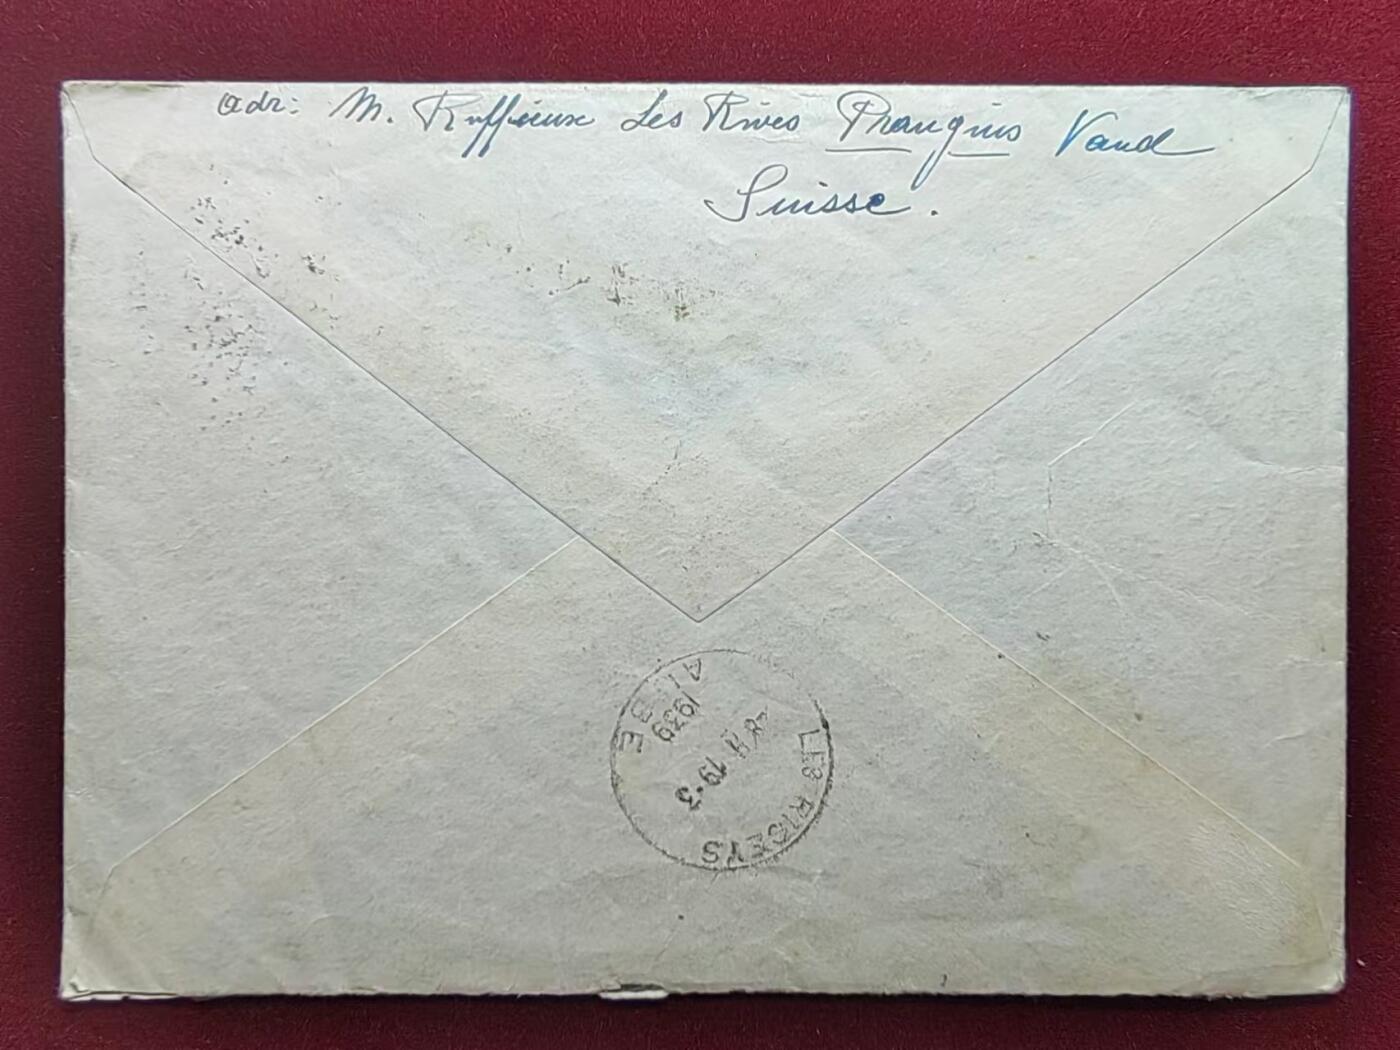 Adr: M. Ruffieux Les Rives Prangins Vaud
Suisse.
LES RICEYS
19-3
1939
AUBE